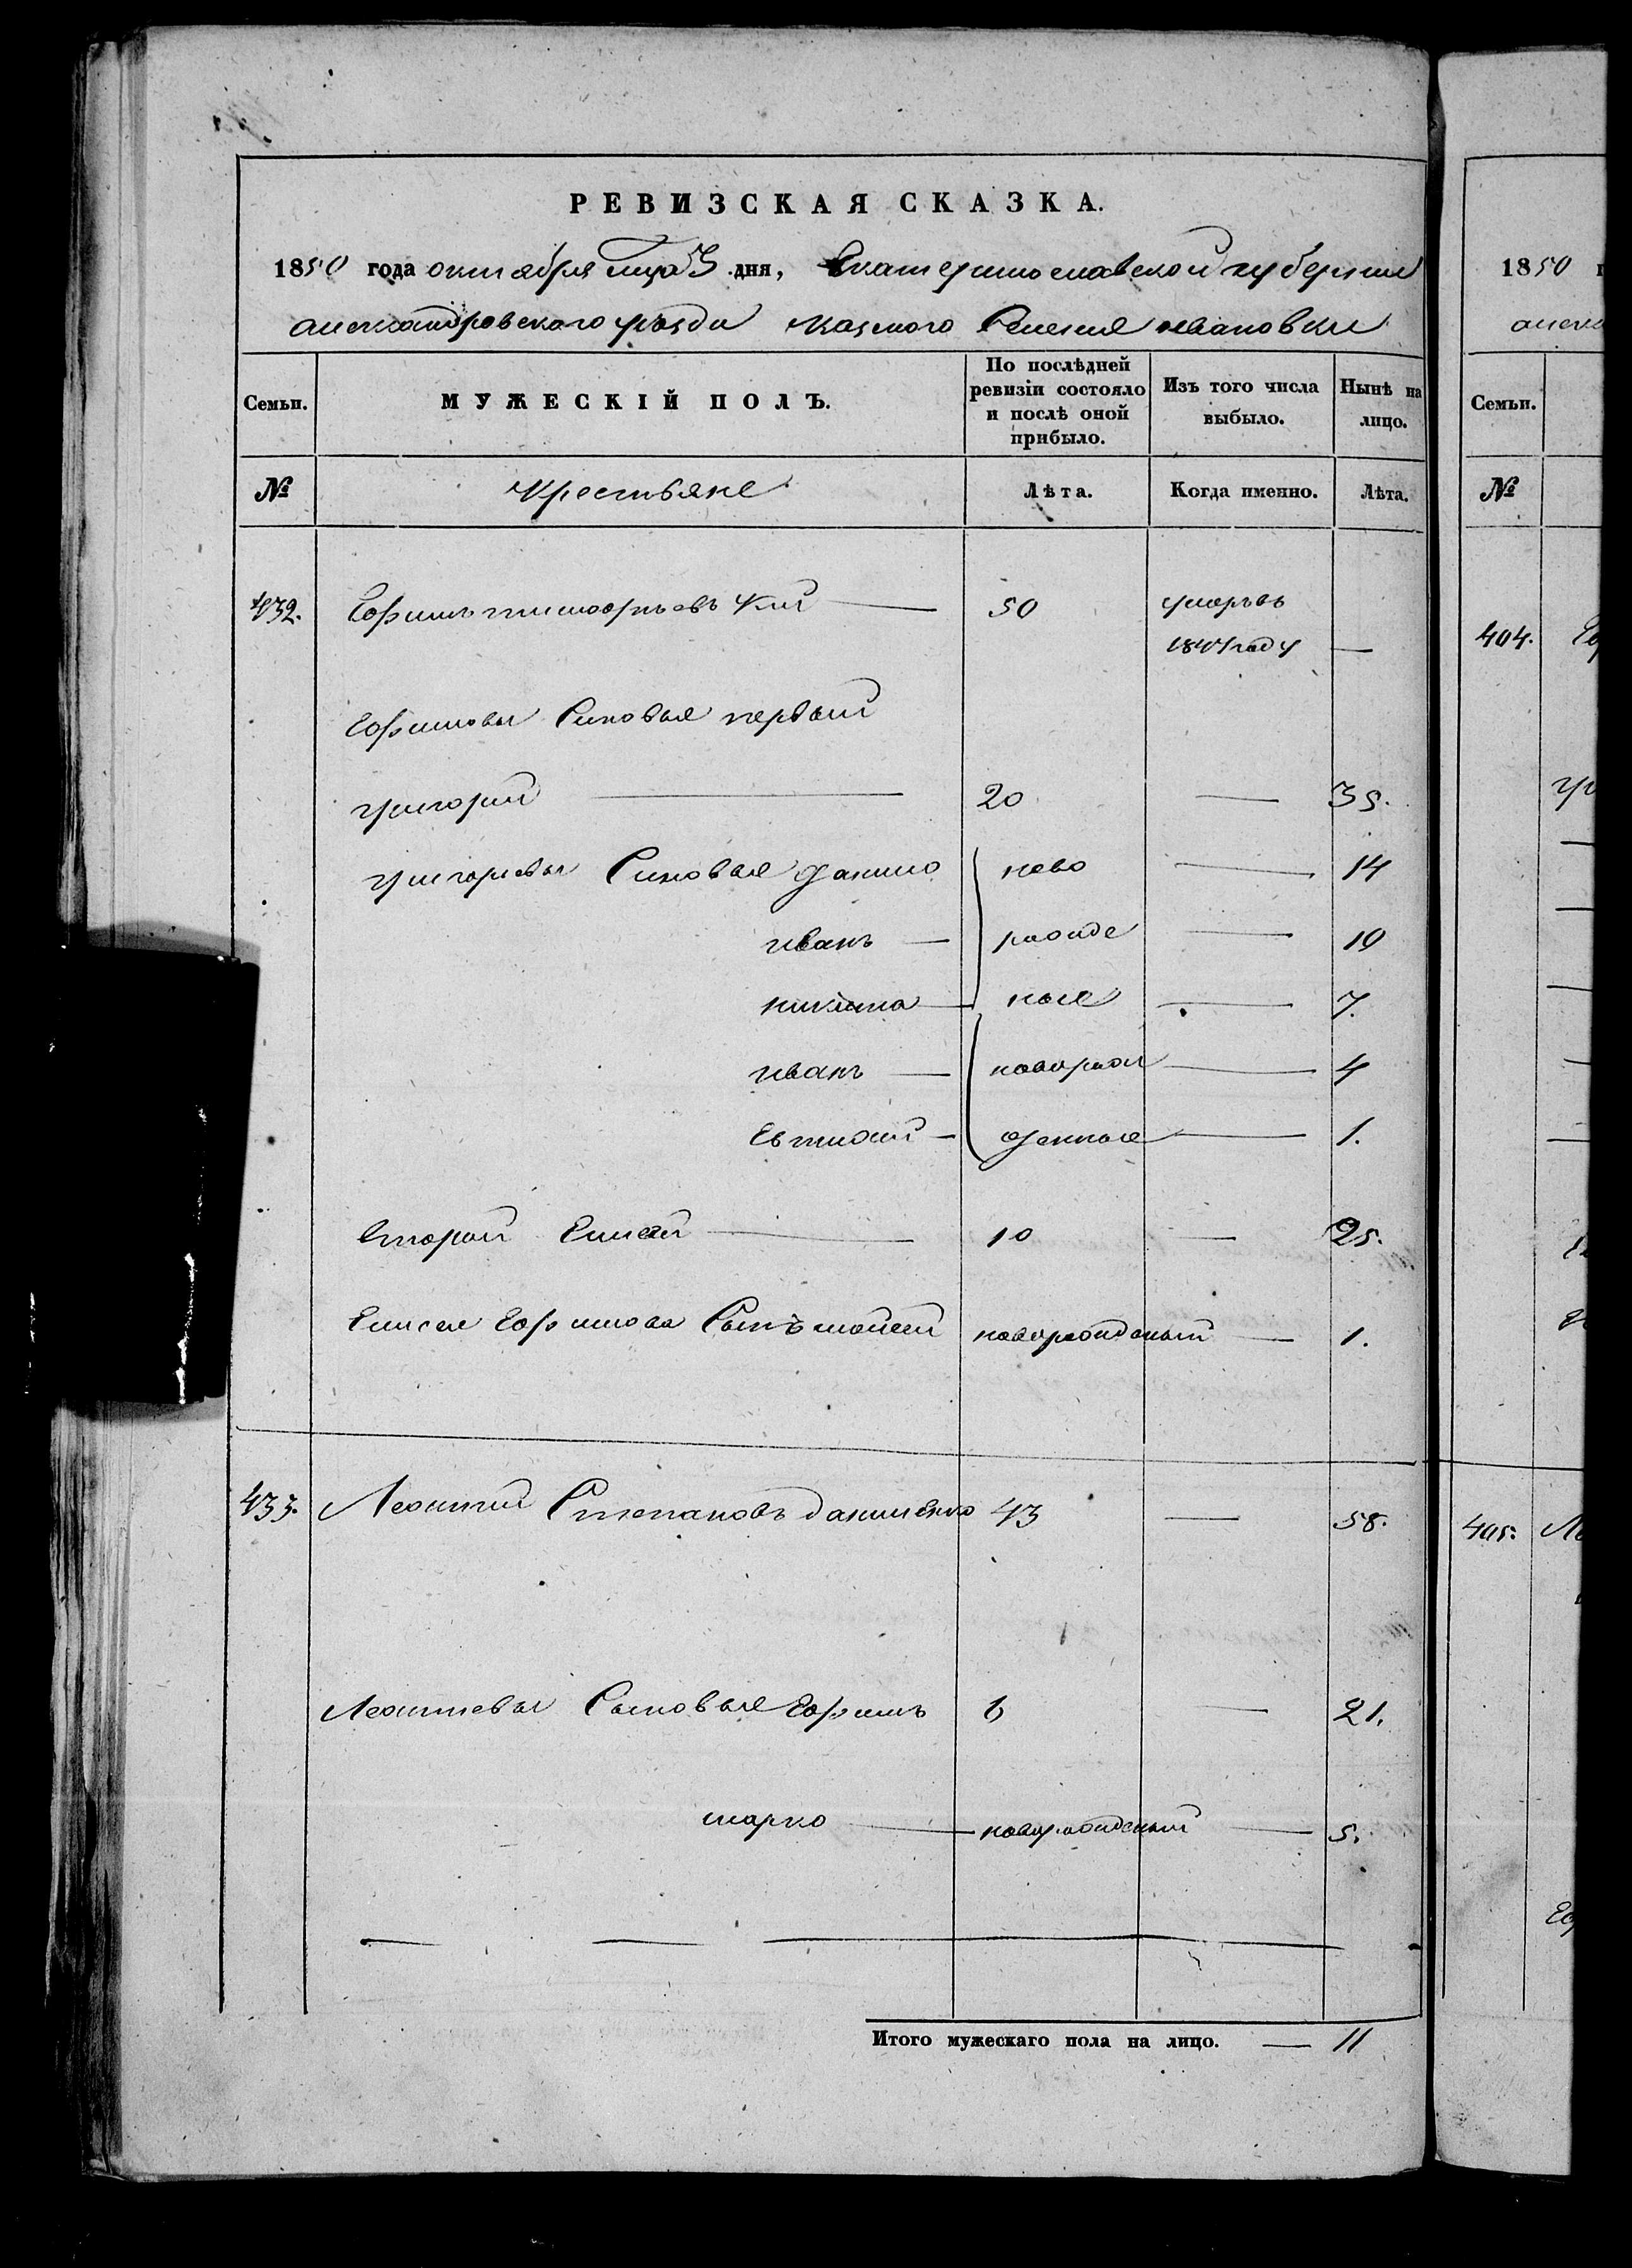 РЕВИЗСКАЯ СКАЗКА.
1850 года октября мца 3 дня, Екатеринославской губернии
александровского уезда казеного Селения ивановки
Семьи.
МУЖЕСКІЙ ПОЛЪ.
По послѣдней
ревизіи состояло
и послѣ оной
прибыло.
Изъ того числа
выбыло.
Нынѣ на
лицо.
№ Крестьяне Лѣта. Когда именно. Лѣта.
432. Ефимъ тимофѣевъ 50 умеръвъ
году —
Ефимовы Синовья первый
григорий 20 — 35.
григориевы Синовья данило ново — 14
иванъ — рожде — 10
никита — ные — 7.
иванъ — новорож — 4
Евтихий — денные — 1.
Второй Елисей 10 — 25.
Елисея Ефимова Сынъ мойсей новорожденый — 1.
433. Леонтий Степановъ даниленко 43 — 58.
Леонтиевы Сыновья Ефимъ 6 — 21.
марко — новорожденый — 5.
Итого мужескаго пола на лицо. — 11
1850
Семьи.
№
404.
405.